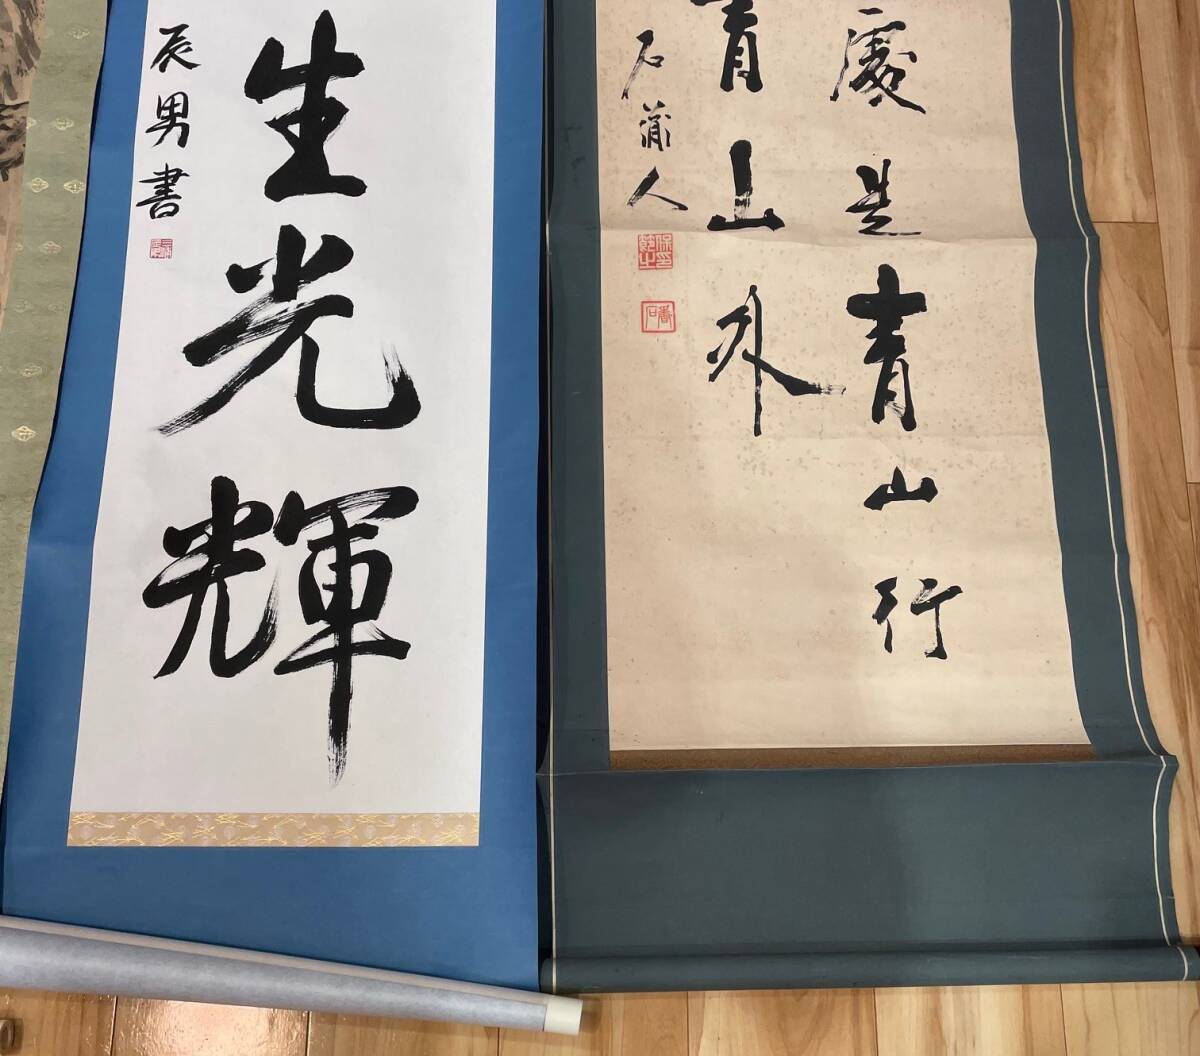 處是青山行
青山外
石蒲人
生光輝
辰男書